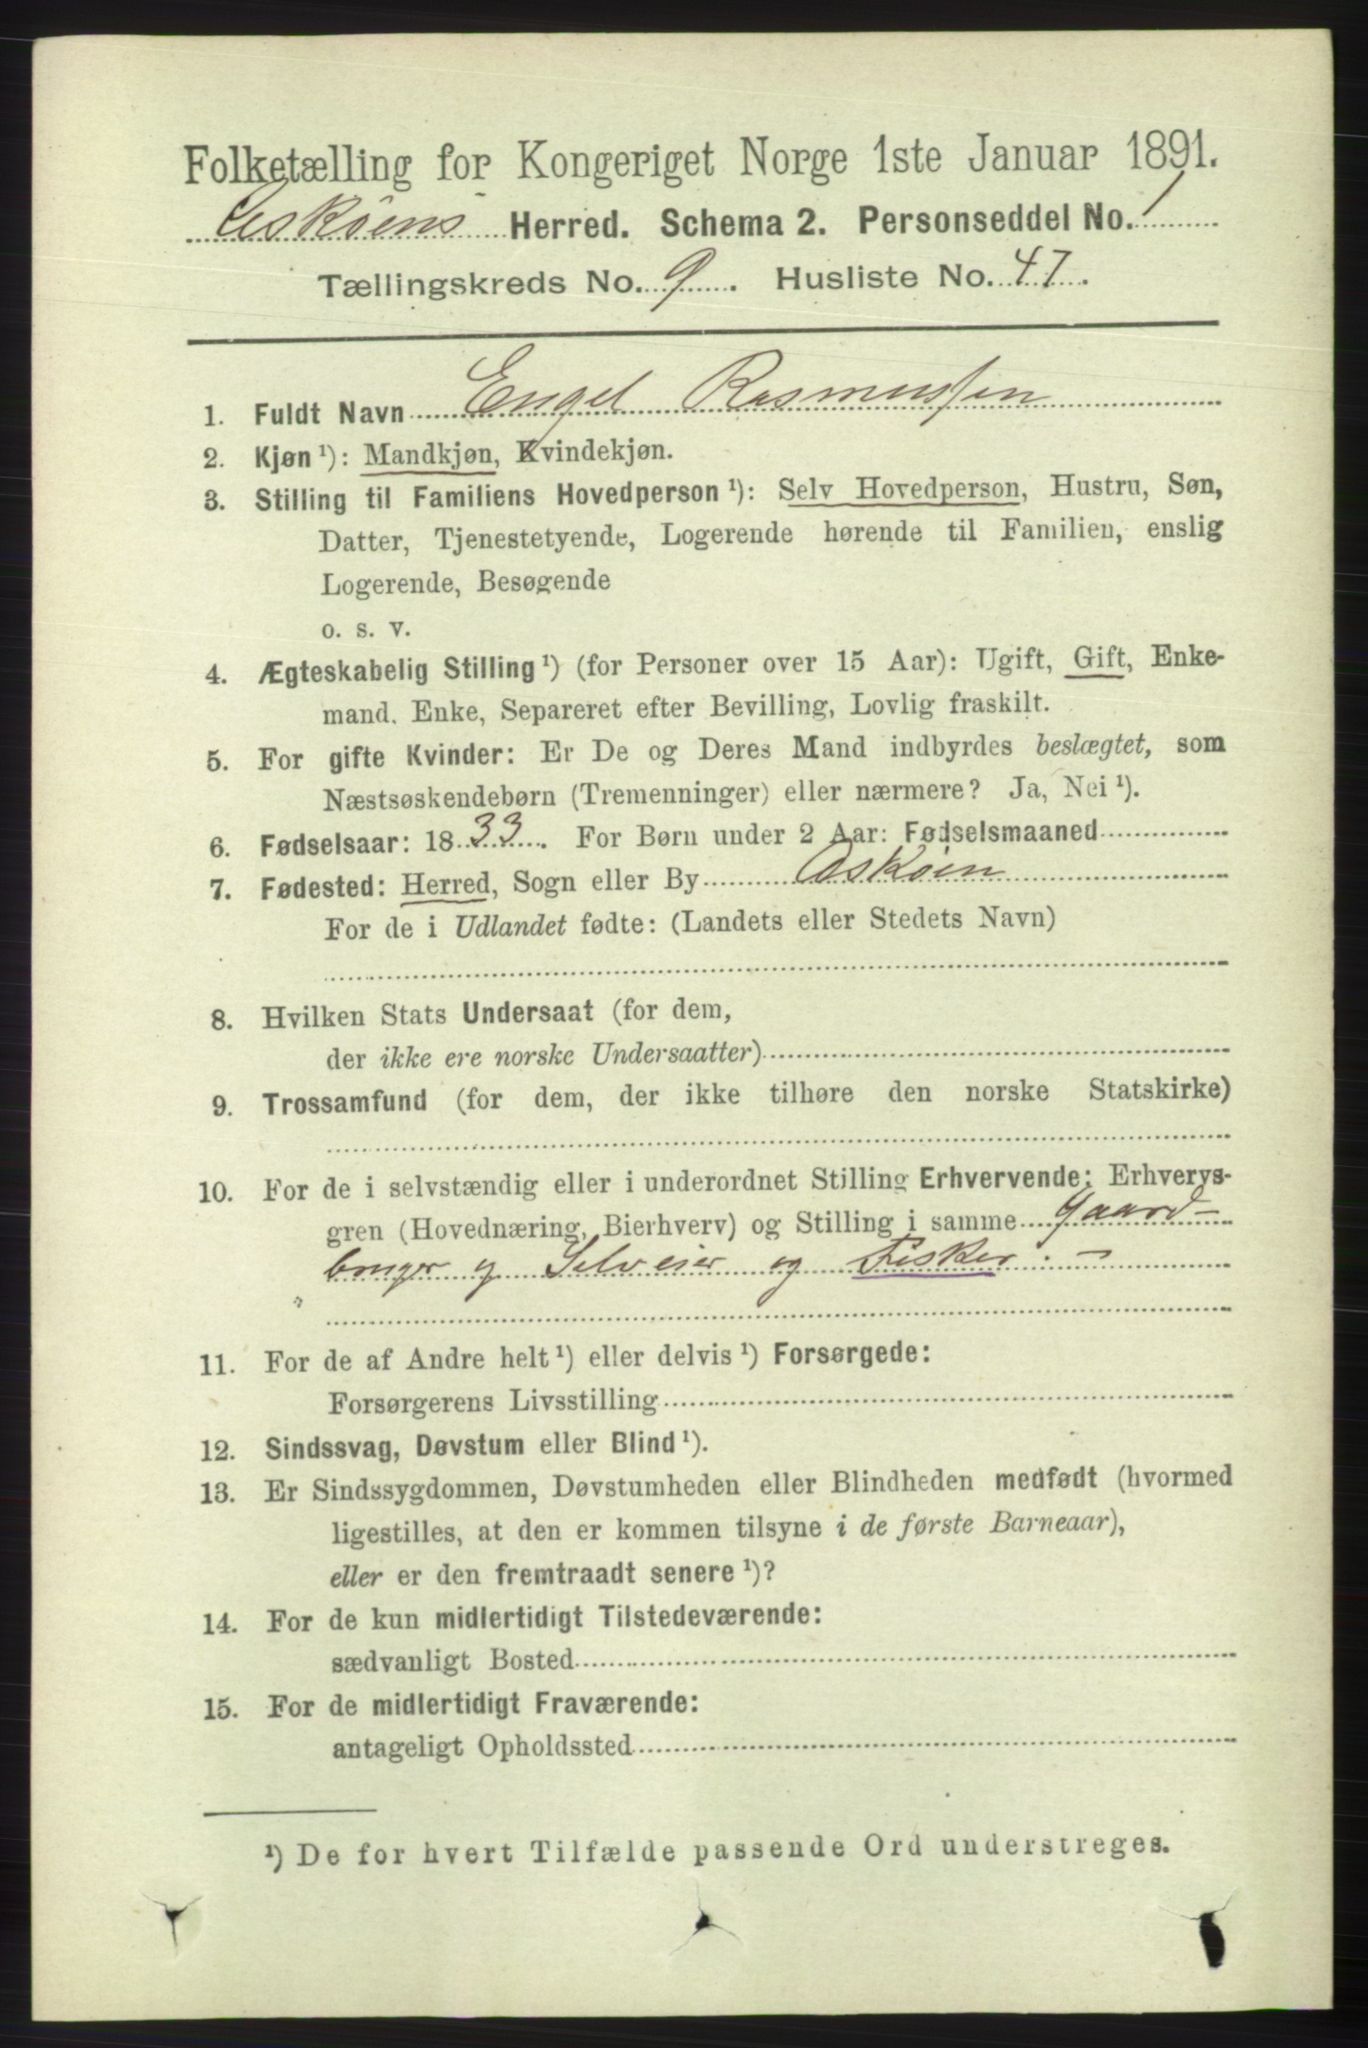 Folketælling for Kongeriget Norge 1ste Januar 1891.
Askøens Herred. Schema 2. Personseddel No. 1
Tællingskreds No. 9. Husliste No. 47.
1. Fuldt Navn Engel Rasmussen
2. Kjøn ¹): Mandkjøn, Kvindekjøn.
3. Stilling til Familiens Hovedperson ¹): Selv Hovedperson, Hustru, Søn,
Datter, Tjenestetyende, Logerende hørende til Familien, enslig
Logerende, Besøgende
o. s. v.
4. Ægteskabelig Stilling ¹) (for Personer over 15 Aar): Ugift, Gift, Enke-
mand. Enke, Separeret efter Bevilling, Lovlig fraskilt.
5. For gifte Kvinder: Er De og Deres Mand indbyrdes beslægtet, som
Næstsøskendebørn (Tremenninger) eller nærmere? Ja, Nei ¹).
6. Fødselsaar: 1833. For Børn under 2 Aar: Fødselsmaaned
7. Fødested: Herred, Sogn eller By Askøen
For de i Udlandet fødte: (Landets eller Stedets Navn)
8. Hvilken Stats Undersaat (for dem,
der ikke ere norske Undersaatter)
9. Trossamfund (for dem, der ikke tilhøre den norske Statskirke)
10. For de i selvstændig eller i underordnet Stilling Erhvervende: Erhvervs-
gren (Hovednæring, Bierhverv) og Stilling i samme Gaard-
bruger og Selveier og Fisker. -
11. For de af Andre helt ¹) eller delvis ¹) Forsørgede:
Forsørgerens Livsstilling
12. Sindssvag, Døvstum eller Blind ¹).
13. Er Sindssygdommen, Døvstumheden eller Blindheden medfødt (hvormed
ligestilles, at den er kommen tilsyne i de første Barneaar),
eller er den fremtraadt senere ¹)?
14. For de kun midlertidigt Tilstedeværende:
sædvanligt Bosted
15. For de midlertidigt Fraværende:
antageligt Opholdssted
¹) De for hvert Tilfælde passende Ord understreges.